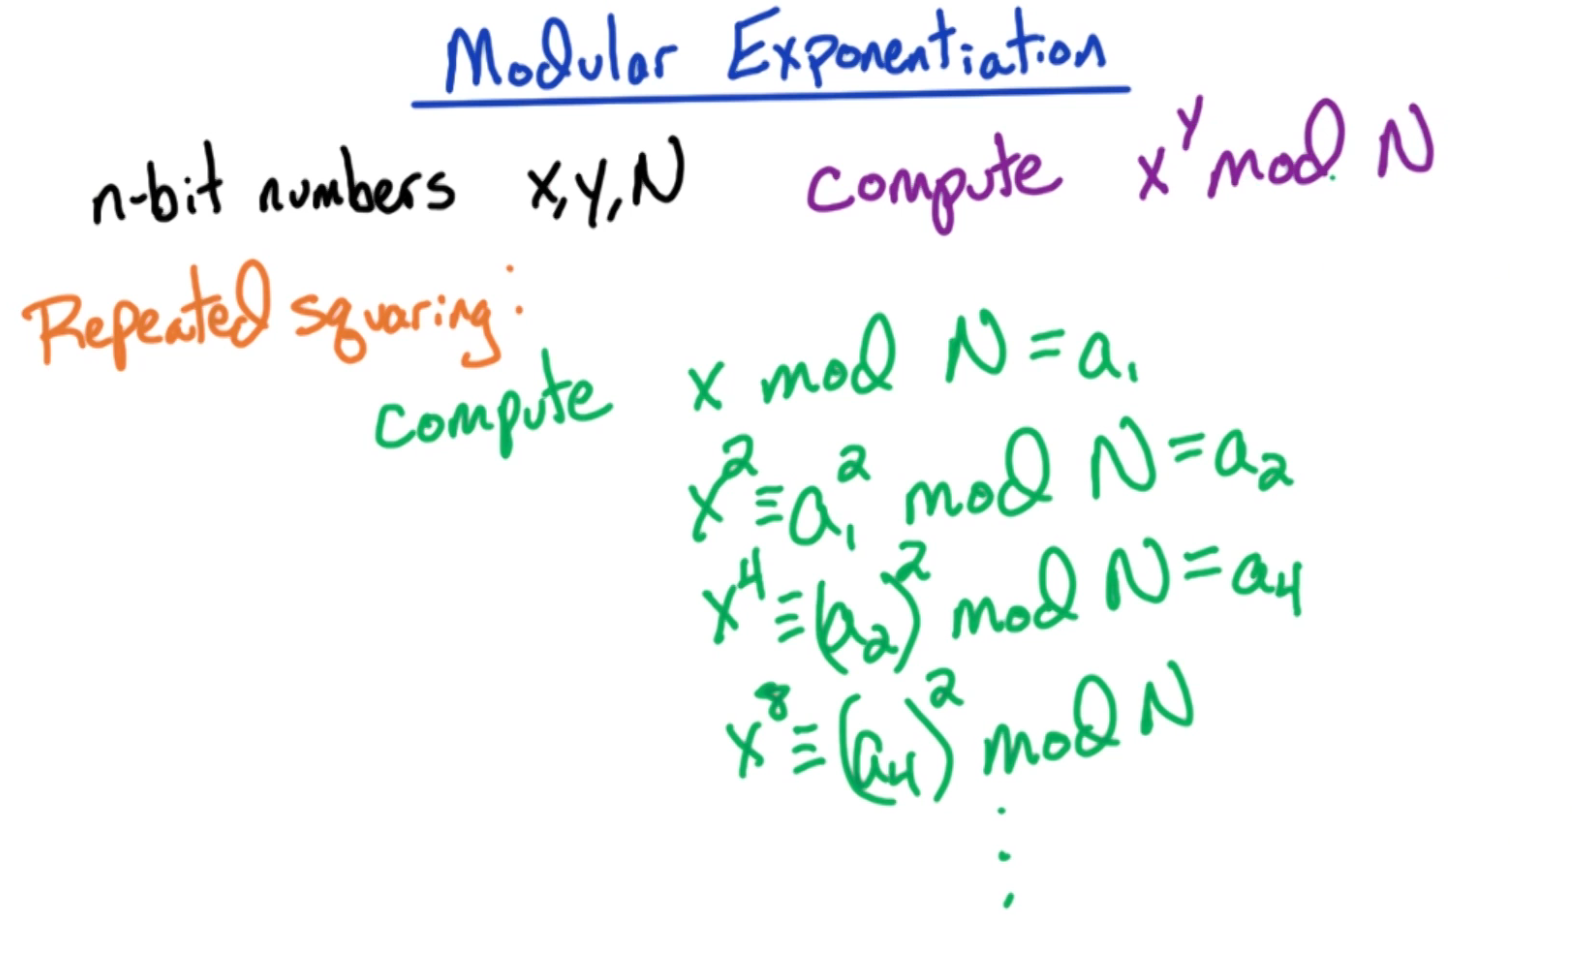 Modular Exponentiation
n-bit numbers x, y, N compute x^y mod N
Repeated squaring:
compute x mod N = a₁
x² ≡ a₁² mod N = a₂
x⁴ ≡ (a₂)² mod N = a₄
x⁸ ≡ (a₄)² mod N
⋮